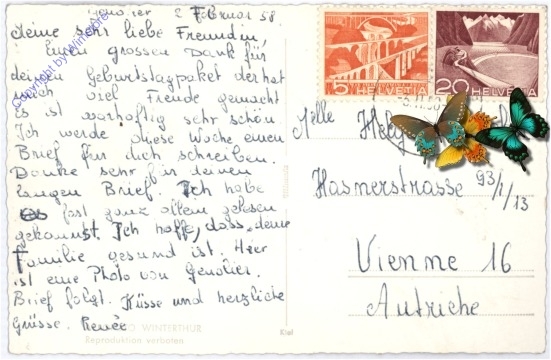 Genolier 2 Februar 58.
Meine sehr liebe Freundin,
Einen grossen Dank für
deinen Geburtstagpaket der hat
mich viel Freude gemacht
Es ist warhaftig sehr schön.
Ich werde diese Woche einen
Brief für dich schreiben.
Danke sehr für deinen
langen Brief. Ich habe
es fast ganz allein gelesen
gekonnt. Ich hoffe, dass deine
Familie gesund ist. Hier
ist eine Photo von Genolier.
Brief folgt. Küsse und herzliche
Grüsse. Renée
WINTERTHUR
Reproduktion verboten
Kief
5 HELVETIA
20 HELVETIA
Melle
Hasnerstrasse 93/1/13
Vienne 16
Autriche